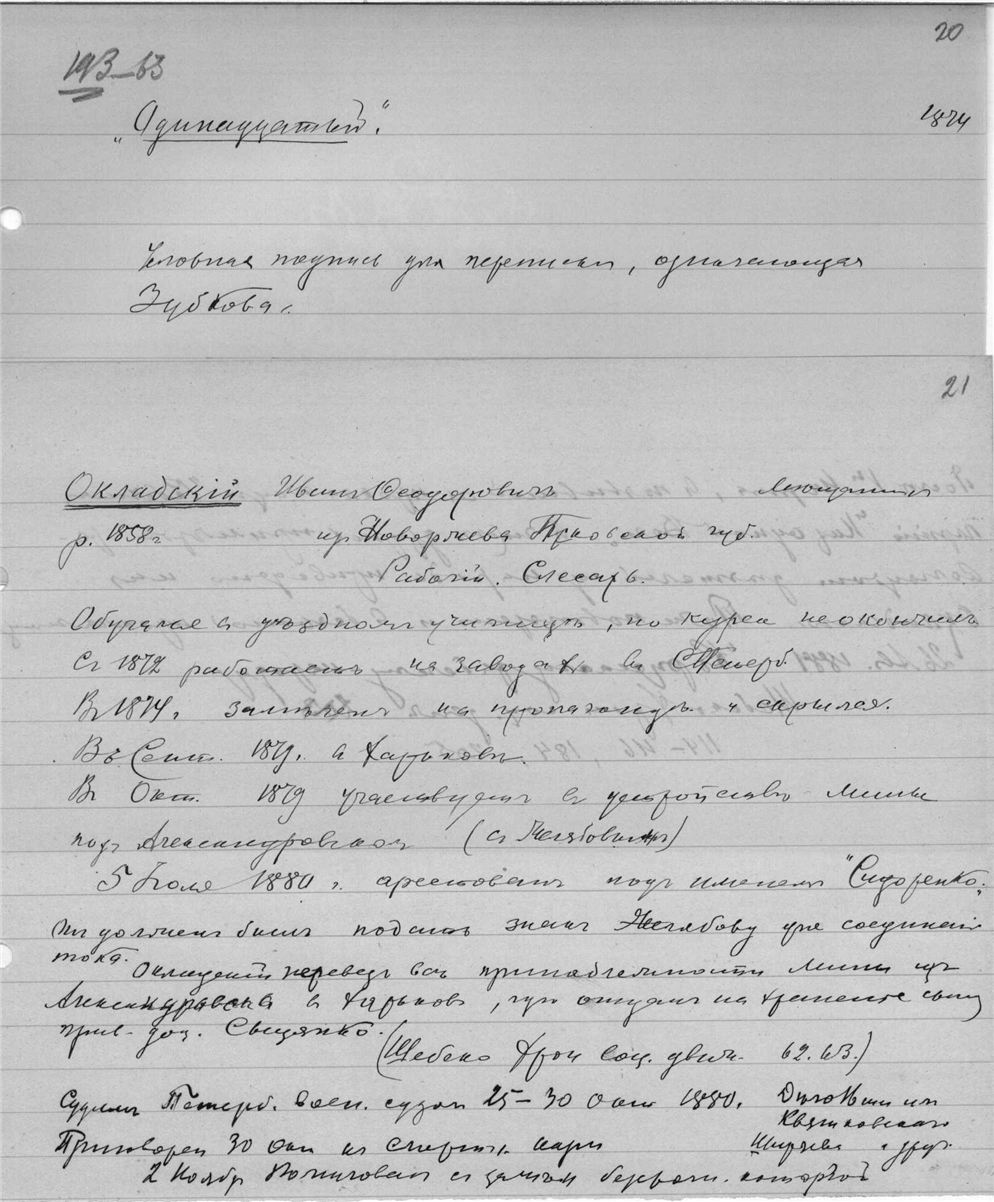 20
193-63
„Одинадцатый".
1874
Условная подпись для переписки, означающая
Зубкова.
21
Окладскій Иванъ Феодоровичъ мещанинъ
р. 1858 г. изъ Новоржева Псковской губ.
Рабочій. Слесарь.
Обучался в уездномъ училище, но курса не окончилъ
Съ 1872 работаетъ на заводах в СПетерб.
Въ 1874г. замеченъ на пропаганде и скрылся.
Въ Сент. 1879г. в Харькове.
В Окт. 1879 участвуетъ в устройстве мины
подъ Александровском (съ Желябовымъ)
5 Июля 1880 г. арестованъ подъ именемъ "Сидоренко".
должен былъ подать знакъ Желябову для соединенія
тока.
Окладскій перевезъ все принадлежности мины изъ
Александровска в Харьковъ, где отдалъ на храненіе
прив-доц. Сыцянко.
(Шебеко Хрон соц. движ. 62. 63.)
Судился Петерб. Воен. судом 25-30 Окт 1880.
Квятковского
Ширяева и друг.
Приговорен 30 Окт к смертн. казни
2 Ноябр Помилован с заменой безсрочн. каторгой